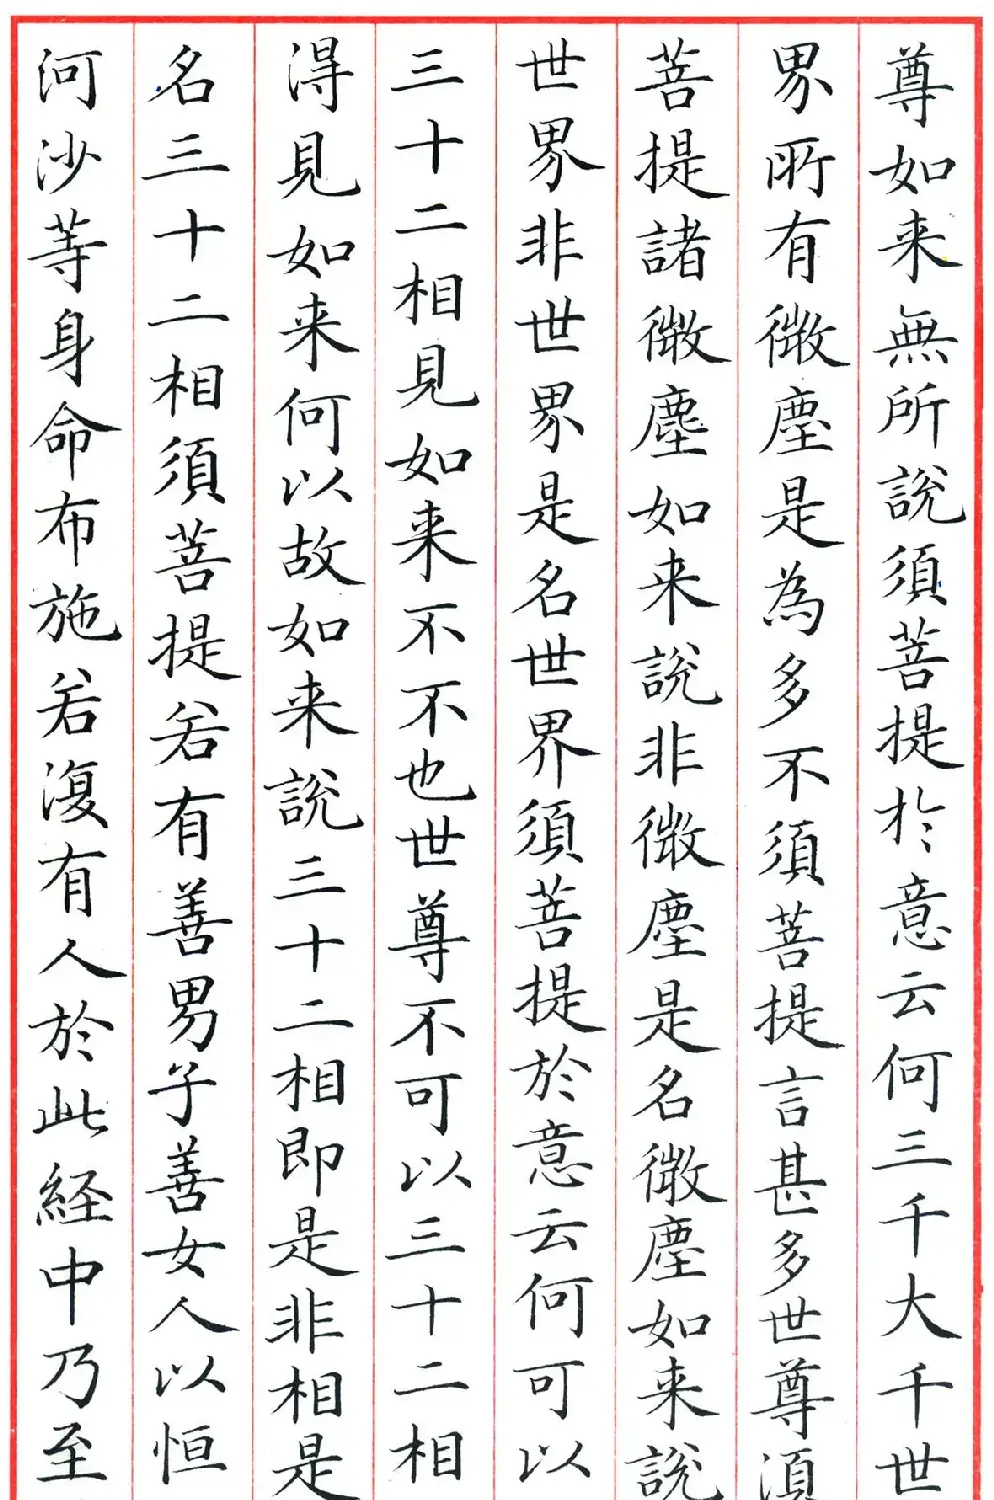 尊如来無所說須菩提於意云何三千大千世
界所有微塵是為多不須菩提言甚多世尊須
菩提諸微塵如来說非微塵是名微塵如来說
世界非世界是名世界須菩提於意云何可以
三十二相見如来不不也世尊不可以三十二相
得見如来何以故如来說三十二相即是非相是
名三十二相須菩提若有善男子善女人以恒
河沙等身命布施若復有人於此経中乃至